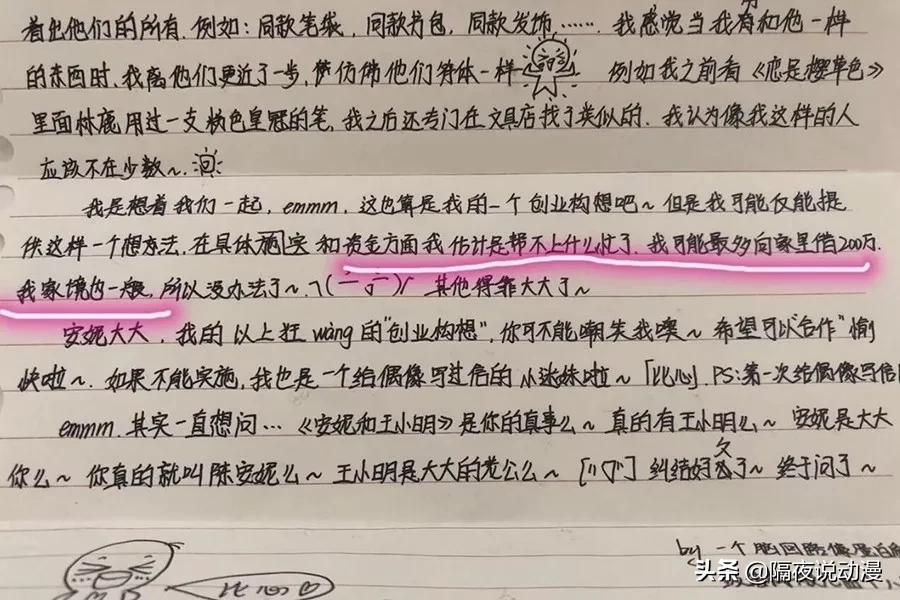 着出他们的所有.例如:同款笔袋,同款书包,同款发饰……我感觉当我有和他一样
的东西时,我离他们更近了一步,彷彿他们一样 例如我之前看《恋是樱草色》
里面林鹿用过一支粉色皇冠的笔,我之后还专门在文具店找了类似的.我认为像我这样的人
应该不在少数~.
我是想着我们一起,emmm,这也算是我的一个创业构想吧~但是我可能仅能提
供这样一个想方法,在具体落实和资金方面我估计是帮不上什么忙了.我可能最多向家里借200万.
我家境也一般,所以没办法了~.其他得靠大大了~
安妮大大,我的以上狂wàng的"创业构想",你可不能嘲笑我噢~希望可以"合作"愉
快啦~.如果不能实施,我也是一个给偶像写过信的小迷妹啦~「比心」.PS:第一次给偶像写信
emmm.其实一直想问…《安妮和王小明》是你的真事么~真的有王小明么~安妮是大大
你么~你真的就叫陈安妮么~王小明是大大的老公么~纠结好久了~终于问了~
by 一个脑回路像蛋白
比心
头条 @隔夜说动漫